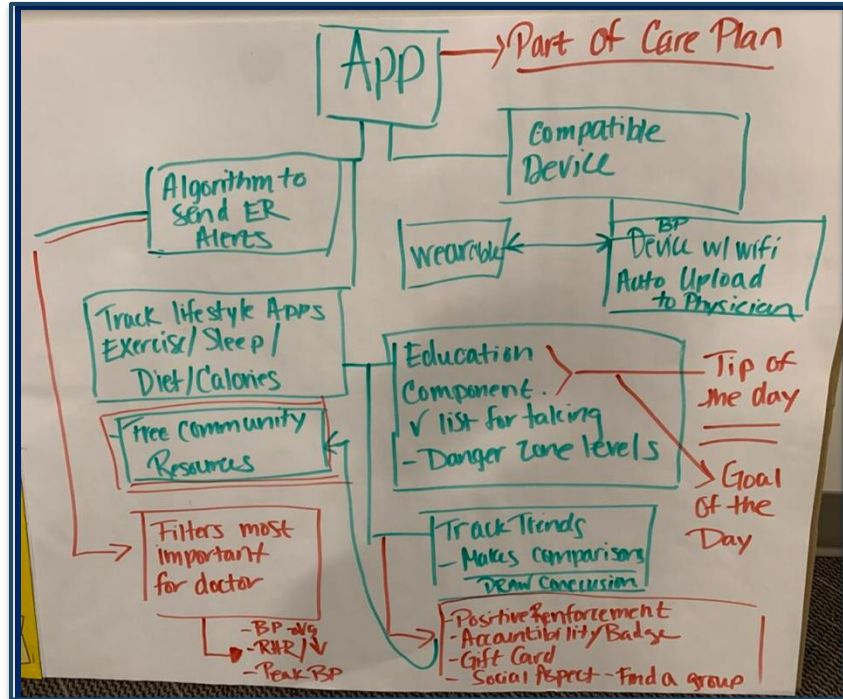 App
Part of Care Plan
Compatible
Device
Algorithm to
send ER
Alerts
wearible
BP
Device w/ wifi
Auto Upload
to Physician
Track lifestyle Apps
Exercise/Sleep/
Diet/Calories
Education
Component.
√ list for taking
- Danger zone levels
Tip of
the day
Goal
of the
Day
- Free Community
Resources
Track Trends
- Makes comparisons
DRAW Conclusion
Filters most
important
for doctor
- BP
- RHR/
- Peak BP
- Positive Renforcement
- Accountibility/Badge
- Gift Card
- Social Aspect - Find a group